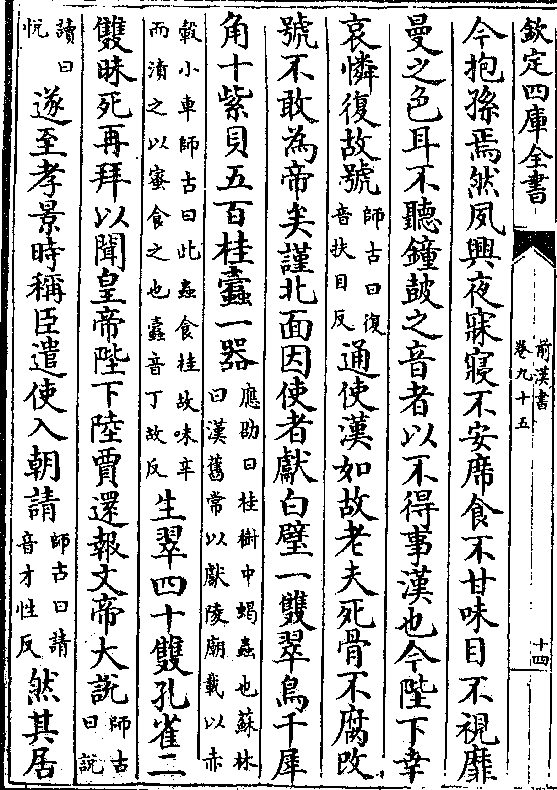 欽定四庫全書
前漢書
卷九十五
十四
今抱孫焉然夙興夜寐寢不安席食不甘味目不視靡
曼之色耳不聽鐘鼓之音者以不得事漢也今陛下幸
哀憐復故號師古曰復音扶目反通使漢如故老夫死骨不腐改
號不敢為帝矣謹北面因使者獻白璧一雙翠鳥千犀
角十紫貝五百桂蠹一器應劭曰桂樹中蝎蟲也蘇林曰漢舊常以獻陵廟載以赤
轂小車師古曰此蟲食桂故味辛而漬之以蜜食之也蠹音丁故反生翠四十雙孔雀二
雙昧死再拜以聞皇帝陛下陸賈還報文帝大說師古曰說
讀曰悅遂至孝景時稱臣遣使入朝請師古曰請音才性反然其居